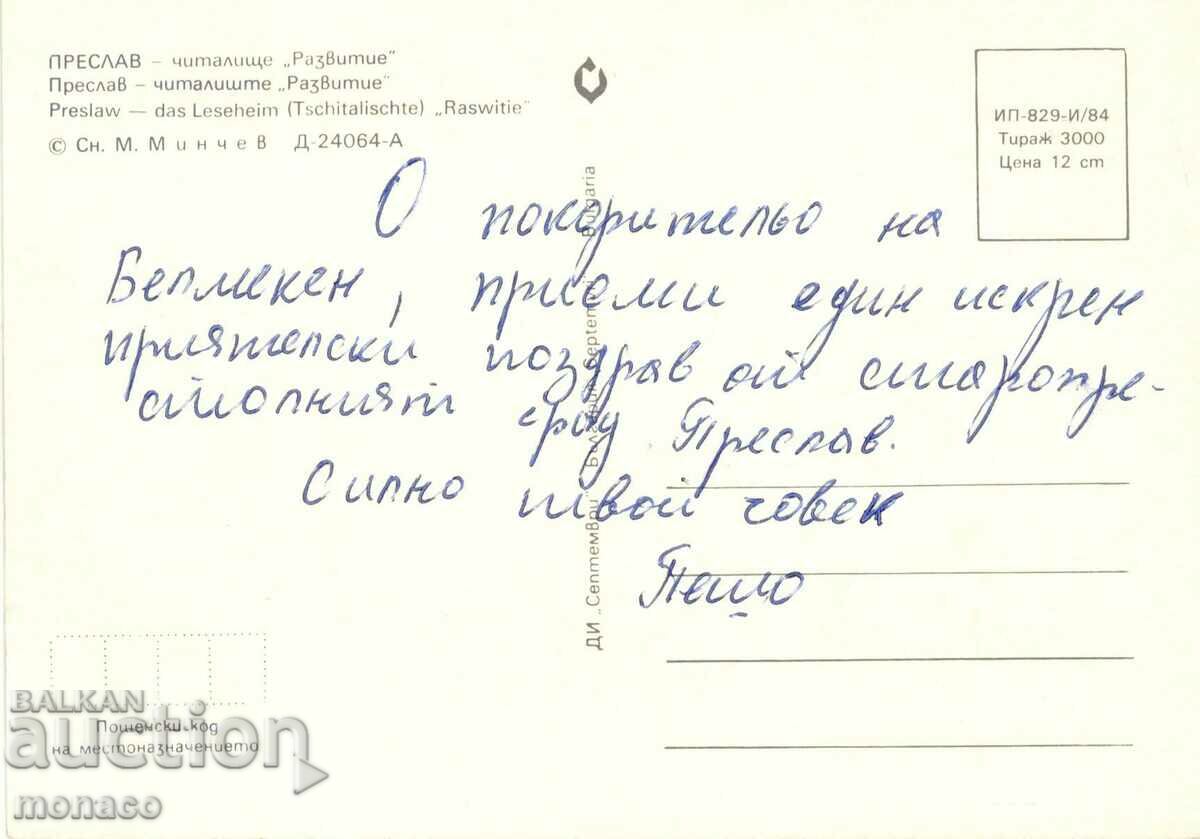 ПРЕСЛАВ – читалище „Развитие"
Преслав – читалиште „Развитие"
Preslaw — das Leseheim (Tschitalischte) „Raswitie"
© Сн. М. Минчев Д-24064-А
ИП-829-И/84
Тираж 3000
Цена 12 ст
О покорительо на
Белмекен, приеми един искрен
приятелски поздрав от старопре-
столният град Преслав.
Силно твой човек
Пешо
ДИ „Септември" България Septemvri Bulgaria
Пощенски код
на местоназначението
BALKAN
auction
monaco